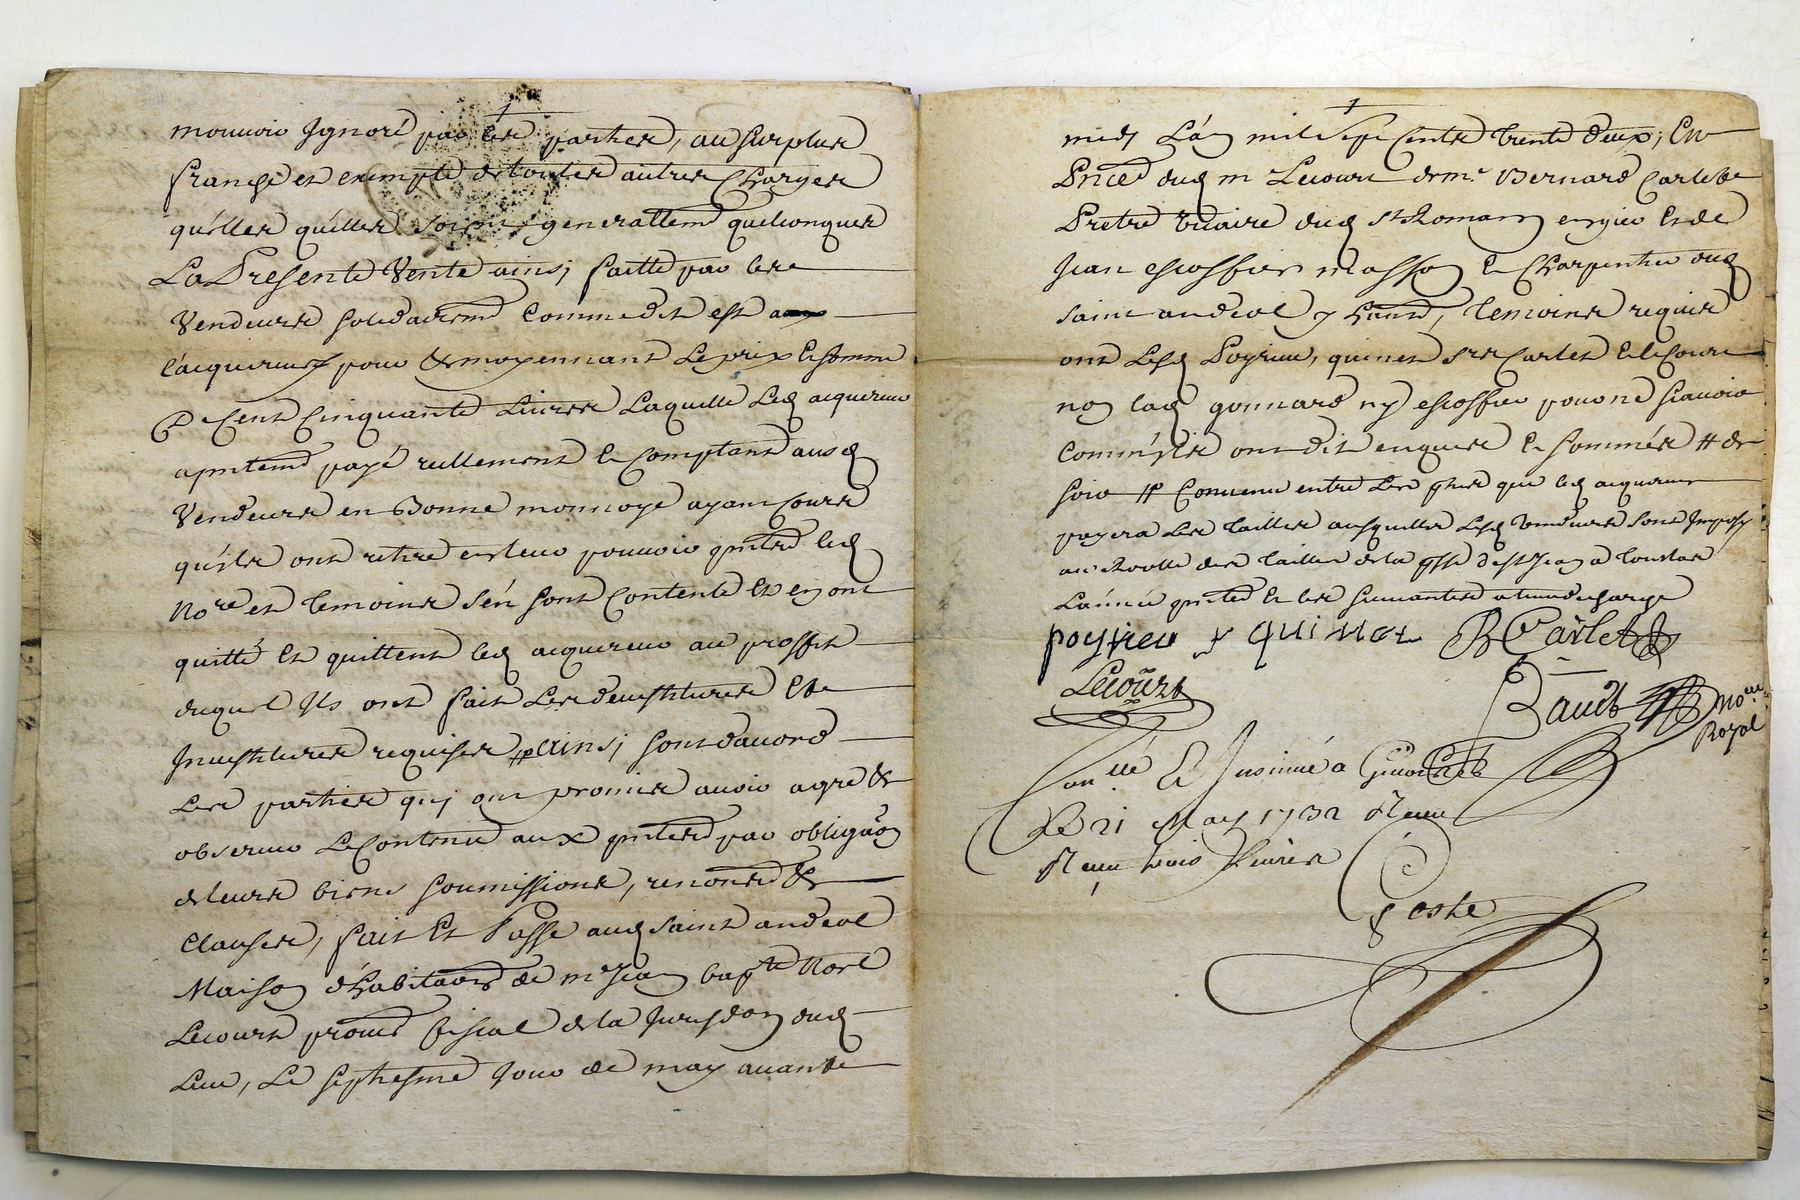 mouvoir Ignoré par les parties, au surplus
franche et exempte de touttes autres Charges
qu'elles qu'elles soient generallemt quelconques
La Presente Vente ainsi faitte par les
Vendeurs solidairemt Comme dit est
l'acquereur pour & moyennant Le prix & somme
De Cent Cinquante Livres Laquelle Led acquereur
a pntemt payé reellement & Comptant ausd
Vendeurs en Bonne monnoye ayant Cours
qu'ils ont retiré en leur pouvoir pntes led
Nore et temoins s'en sont Contenté Et en ont
quitté Et quittent led acquereur au proffit
duquel Ils ont fait Les devestitures Et
Investitures requises ainsi sont d'accord
Les parties qui ont promis avoir agré &
observer Le Contenu aux pntes par obligaon
de leurs biens soumissions, renons &
Clauses, fait Et Passé aud saint andeol
Maison d'habitaon de me Jean bapte Noel
Lecourt procur fiscal de la Jurisdon dud
Lieu, Le septiesme Jour de may avant
midy L'an mil sept Cents trente deux; En
Pnce dud me Lecourt de mre Bernard Carlet
Pretre vicaire dud st Romain en gier Et de
Jean escoffier masson & Charpentier dud
saint andeol y habitt, temoins requis
ont Lesd Poyrieu, quinet srs Carlet & Lecourt
non lad gonnard ny escoffier pour ne sçavoir
Comm'ils ont dit enquis & sommés # de
soir # Convenu entre Les pties que led acquereur
payera Les tailles ausquelles Lesd Vendeurs sont Imposé
au Roolle des tailles de la psse de st Jean a toulas
L'année pnte & les suivantes a leur decharge
poyrieu J quinet B Carlet
Lecourt
Baudt Nore
Royal
Conllé & Insinué a Givors
Le 21 May 1732 Reçu
Reçu trois Livres
Coste